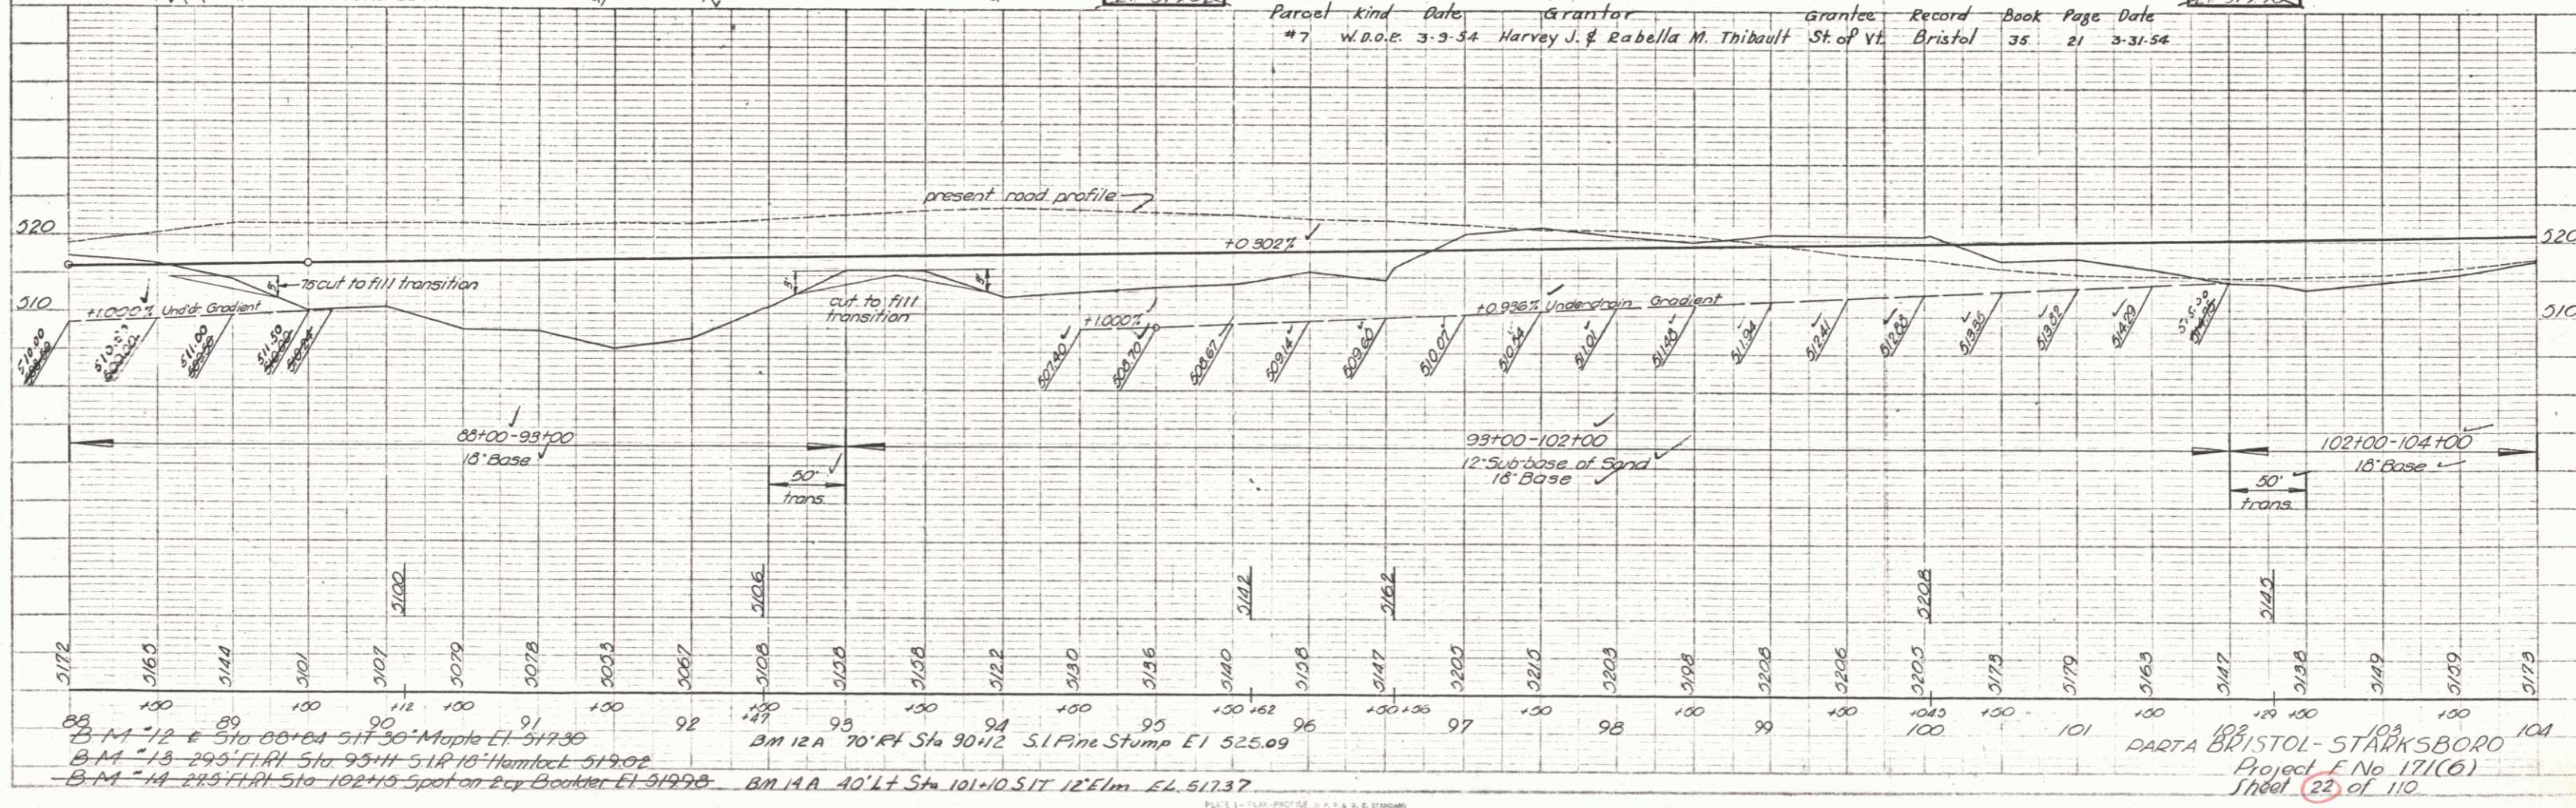 Parcel Kind Date Grantor Grantee Record Book Page Date
#7 W.D.O.E. 3-9-54 Harvey J. & Rabella M. Thibault St. of Vt. Bristol 35 21 3-31-54
present road profile
520
+0.302%
520
75 cut to fill transition
5'
5'
5'
510
+1.000% Und'dr. Gradient
cut to fill
transition
+1.000%
+0.936% Underdrain Gradient
510
510.00
511.00
511.50
510.24
507.40
508.70
508.67
509.14
509.60
510.07
510.54
511.01
511.48
511.94
512.41
512.88
513.35
513.82
514.29
515.30
88+00-93+00
18" Base
50'
trans.
93+00-102+00
12" Sub-base of Sand
18" Base
102+00-104+00
18" Base
50'
trans.
5100
5106
5142
5162
5208
5145
5172 5165 5144 5101 5107 5079 5078 5053 5067 5108 5158 5158 5122 5130 5136 5140 5158 5147 5205 5215 5203 5198 5208 5206 5205 5175 5179 5163 5147 5138 5149 5159 5173
88 +50 89 +50 90 +12 +50 91 +50 92 +47 +50 93 +50 94 +50 95 +50 +62 96 +50 +56 97 +50 98 +50 99 +50 100 +045 +50 101 +50 102 +29 +50 103 +50 104
B.M. #12 ₵ Sta 88+84 S.I.T 30" Maple El. 517.30
BM 12A 70' Rt Sta 90+12 S.I. Pine Stump El 525.09
B.M. #13 295' Ft Rt. Sta. 95+11 S.I.R 18" Hemlock 519.02
B.M. #14 275' Ft Rt Sta 102+15 Spot on 2cy Boulder El. 519.98
BM 14A 40' Lt Sta 101+10 SIT 12" Elm EL. 517.37
PART A BRISTOL-STARKSBORO
Project F No 171(6)
Sheet 22 of 110